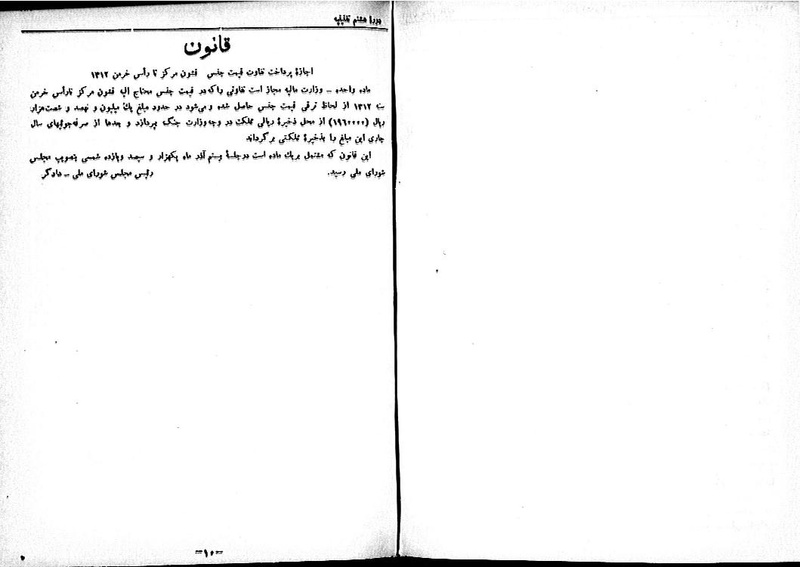 دورهٔ هشتم تقنینیه
قانون
اجازهٔ پرداخت تفاوت قیمت جنس قشون مرکز تا رأس خرمن ۱۳۱۲
ماده واحده – وزارت مالیه مجاز است تفاوتی راکه در قیمت جنس محتاج الیه قشون مرکز تارأس خرمن
۱۳۱۲ از لحاظ ترقی قیمت جنس حاصل شده و می‌شود در حدود مبلغ یك میلیون و نهصد و شصت‌هزار
ریال (۱۹۶۰۰۰۰) از محل ذخیرهٔ ریالی مملکت در وجه وزارت جنگ بپردازد و بعدها از صرفه‌جوئیهای سال
جاری این مبلغ را بذخیرهٔ مملکتی برگرداند
این قانون که مشتمل بریك ماده است درجلسهٔ بیستم آذر ماه یکهزار و سیصد ویازده شمسی بتصویب مجلس
شورای ملی رسید. رئیس مجلس شورای ملی – دادگر
–۱۰–